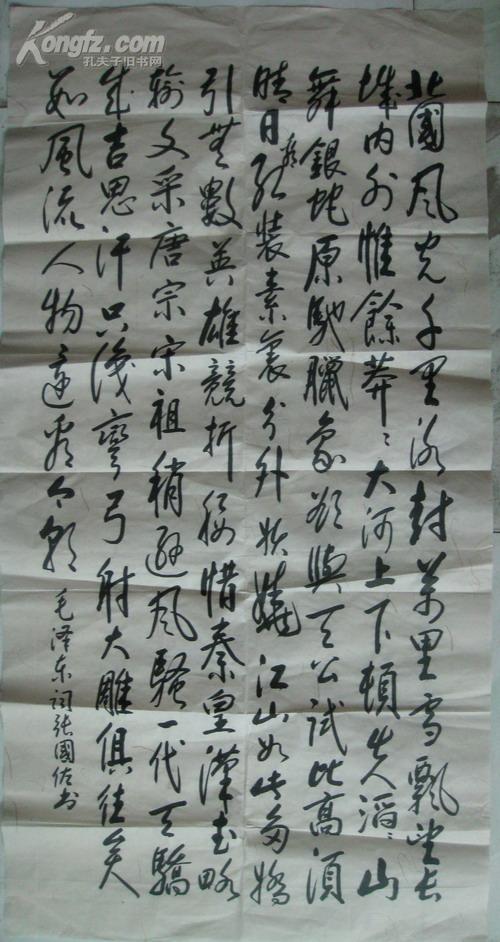 Kongfz.com
孔夫子旧书网
北國风光千里冰封萬里雪飄望长
城内外惟餘莽〻大河上下頓失滔〻山
舞銀蛇原馳臘象欲與天公試比高須
晴日看红装素裹分外妖娆江山如此多嬌
引無數英雄競折腰惜秦皇漢武略
输文采唐宗宋祖稍遜风騷一代天驕
成吉思汗只識彎弓射大雕俱往矣
数風流人物還看今朝
毛泽东词张國佐书